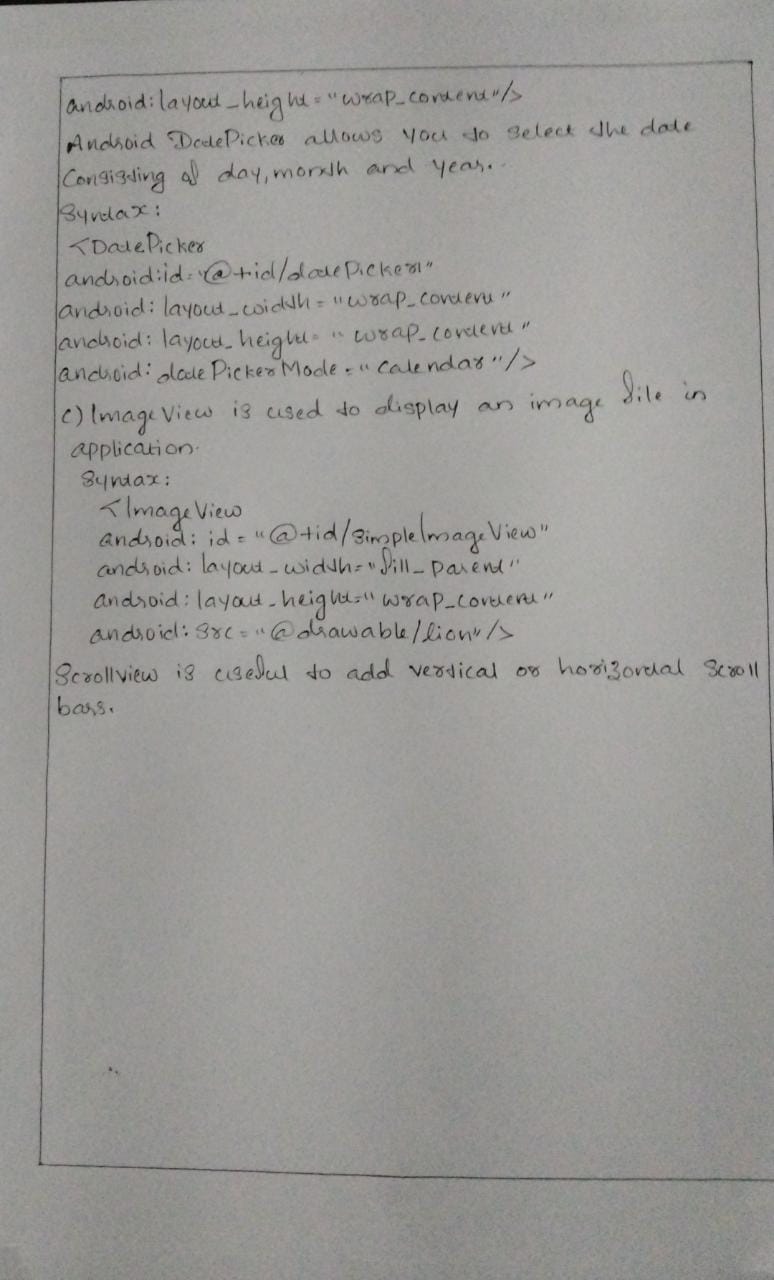 android:layout_height="wrap_content"/>
Android DatePicker allows you to select the date
Consisting of day, month and year.
Syntax:
<DatePicker
android:id="@+id/datePicker1"
android:layout_width="wrap_content"
android:layout_height="wrap_content"
android:datePickerMode="calendar"/>
C) ImageView is used to display an image file in
application.
Syntax:
<ImageView
android:id="@+id/simpleImageView"
android:layout_width="fill_parent"
android:layout_height="wrap_content"
android:src="@drawable/lion"/>
Scrollview is useful to add vertical or horizontal scroll
bars.